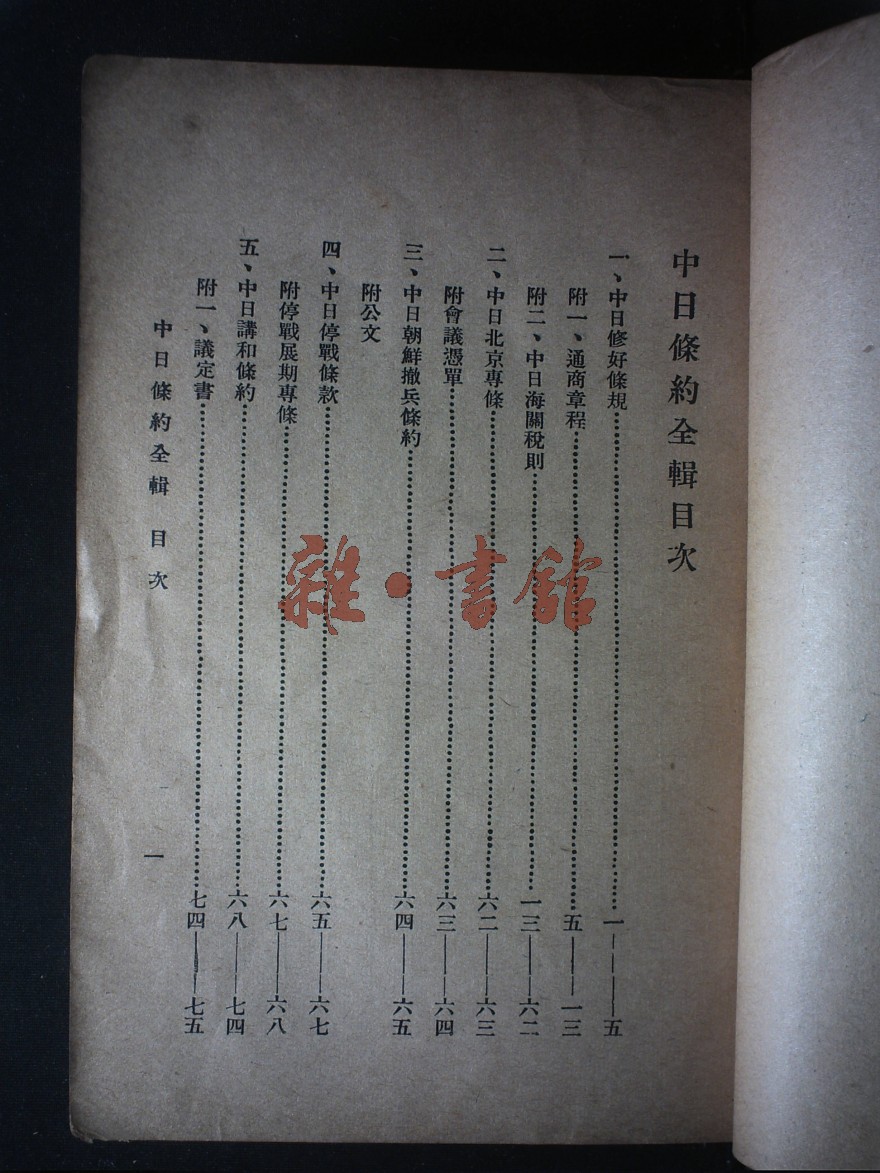 中日條約全輯目次
一、中日修好條規……一——五
附一、通商章程……五——一三
附二、中日海關稅則……一三——六二
二、中日北京專條……六二——六三
附會議憑單……六三——六四
三、中日朝鮮撤兵條約……六四——六五
附公文
四、中日停戰條款……六五——六七
附停戰展期專條……六七——六八
五、中日講和條約……六八——七四
附一、議定書……七四——七五
中日條約全輯 目次
一
雜·書館